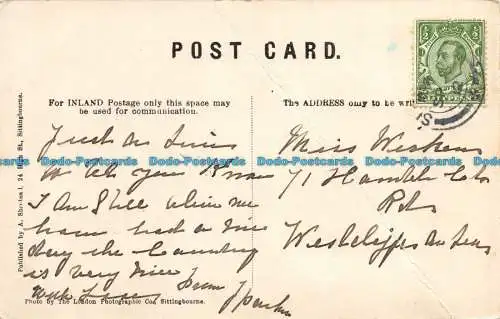 POST CARD.
For INLAND Postage only this space may
be used for communication.
The ADDRESS only to be
Just a line
to let you know
I am still alive we
have had a nice
day the Country
is very nice
with Love from
Miss
71
Rd
Westcliffe on Sea
Published by A. 24 High St., Sittingbourne.
Photo by The London Photographic Co., Sittingbourne.
Dodo-Postcards Dodo-Postcards Dodo-Postcards